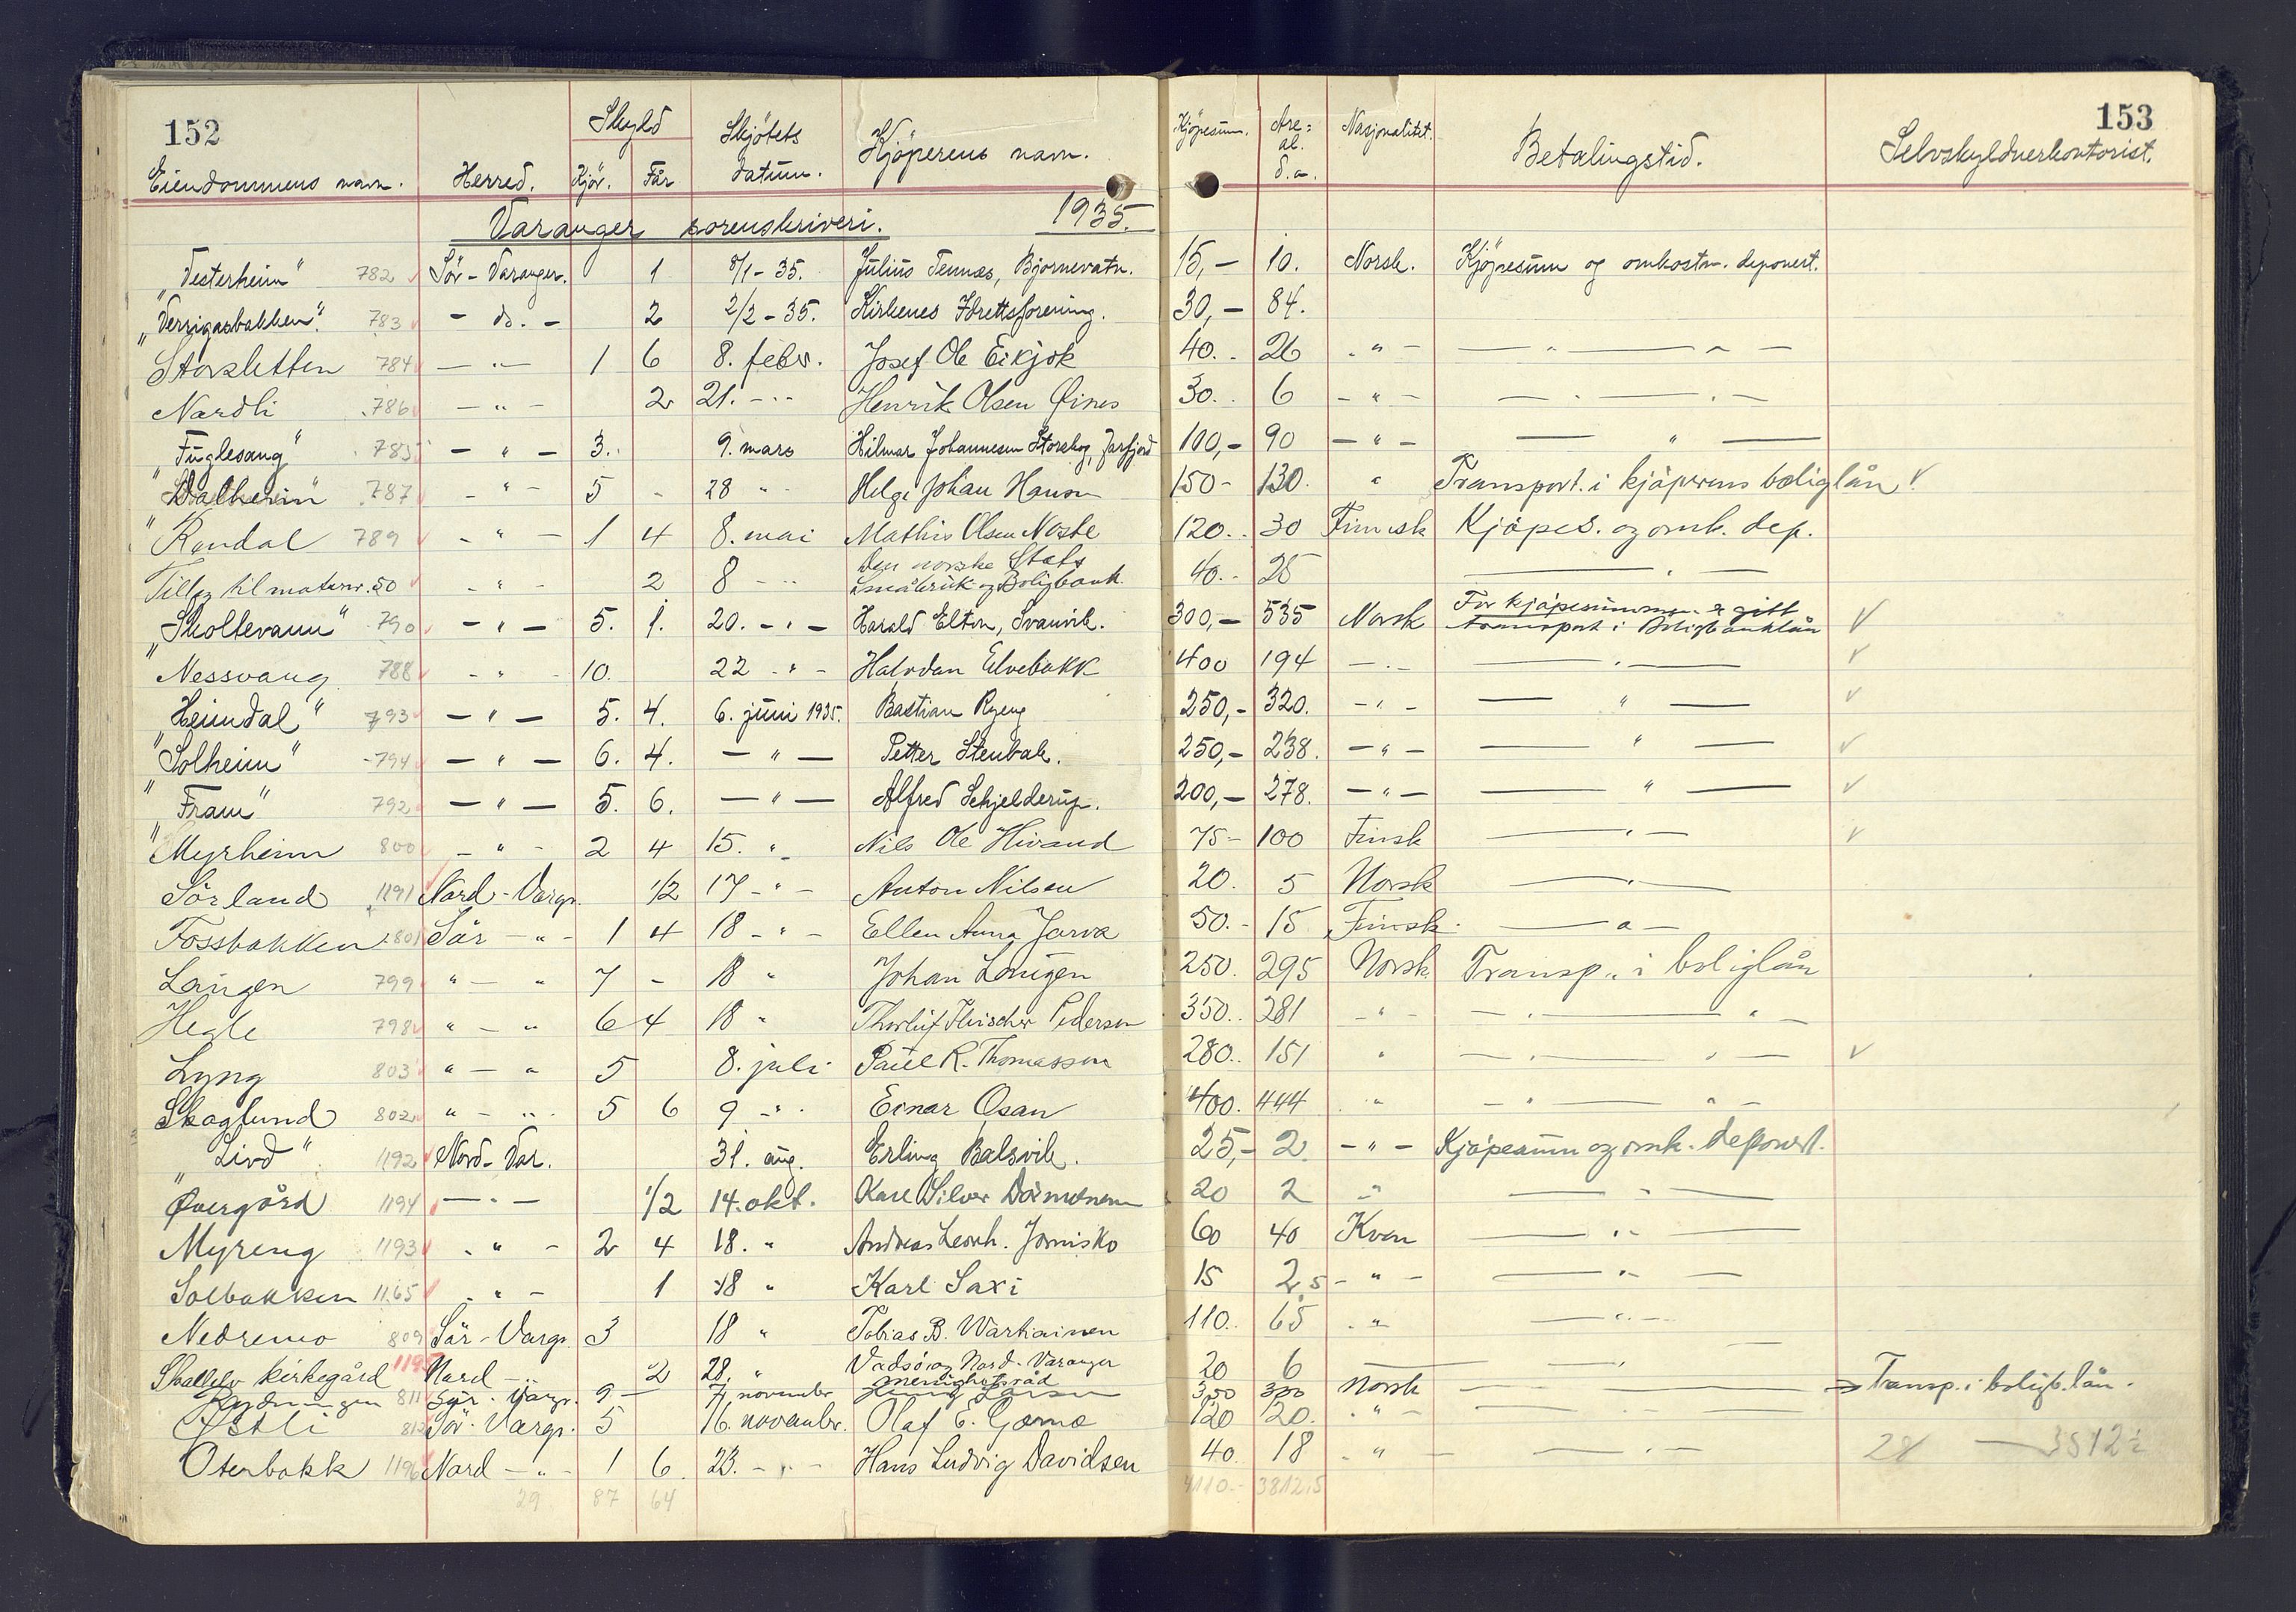 152
153
Eiendommens navn. Herred. Skyld Kjör. Får Skjötets datum. Kjöperens navn. Kjöpesum. Are=al. d.a. Nasjonalitet. Betalingstid. Selvskyldnerkontorist.
Varanger sorenskriveri. 1935.
"Vesterheim" 782 Sör-Varanger. 1 8/1-35. Julius Tennæs, Bjørnevatn. 15,- 10. Norsk. Kjöpesum og omkostn. deponert.
783 - do. - 2 2/2-35. Kirkenes Idrettsforening. 30,- 84.
Storsletten 784 - " - 1 6 8. febr. Josef Ole Eikjok 40.- 26 - " - - " - " -
Nordli 786 - " - 2 21. - " - Henrik Olsen 30.. 6 - " - - " - " -
"Fuglesang" 785 - " - 3. 9. mars Hilmar Johannesen Storskog, Jarfjord 100,- 90 - " - - " -
"Dalheim" 787 - " - 5 - 28 - " Helge Johan Hansen 150- 130. " Transport. i kjöperens boliglån V.
"Rendal 789 - " - 1 4 8. mai Mathis Olsen Noste 120.. 30 Finnsk Kjöpes. og omk. dep.
Tillegg til matrnr. 50 - " - 2 8 - " Den norske Stats Småbruk og Boligbank 40.- 25 - " -
"Skoltevann" 790 - " - 5. 1. 20. - " - Harald Elton, Svanvik. 300,- 535 Norsk For kjöpesummen er gitt transport i Boligbanklån V
Nessvang 788 - " - 10. 22 - " - Halvdan Elvebakk 400 194 - " - - " - V
"Heimdal" 793 - " - 5. 4. 6. juni 1935. Bastian Ryeng 250,- 320. - " - - " - V
"Solheim" 794 - " - 6. 4. - " - Petter Stenbak. 250,- 238. - " - - " - V
"Fram" 792 - " - 5. 6. - " - Alfred Schjelderup. 200,- 278. - " - - " - V
"Myrheim 800 - " - 2 4 15. " Nils Ole Hivand 75- 100 Finsk - " - V
Sörland 1191 Nord-Vargr. 1/2 17 - " - Anton Nilsen 20. 5 Norsk - " -
Fossbakken 801 Sör - " - 1 4 18 - " - Ellen Anna Jarva 50.- 15 Finsk. - " -
Langen 799 " - " 7 - 18 " Johan Langen 250. 295 Norsk Transp. i boliglån
Hegle 798 " - " 6 4 18 " Thorleif Fleischer Pedersen 350.. 281 - " - - " - " -
Lyng 803 " - " 5 8. juli Paul R. Thomassen 280.. 151 " - " - " - V
Skoglund 802 " - " 5 6 9 - " Einar Osan 400. 444 " - " - " -
"Livd" 1192 Nord-Var. 31. aug. Erling Balsvik. 25,- 2 - " - Kjöpesum og omk. deponert.
Övergård 1194 - " - 1/2 14. okt. Kare Silver 20 2 - " - " -
Myreng 1193 - " - 2 4 18. " Andreas Leonh. Jornisko 60 40 Kven - " -
Solbakken 1165 - " - 1 18 " Karl Saxi 15 2,5 - " - - " -
Nedremo 809 Sör-Vargr. 3 18 " Tobias B. Wartiainen 110. 65 - " - " -
Skallelv kirkegård 1195 Nord - " 2 28. " Vadsö og Nord-Varanger menighetsråd 20 6 - " -
Rydningen 811 Sör. Vargr. 9 - 7. november Larsen 350 300 Norsk - " - → Transp. i bolig b. lån.
Östli 812 Sör. Vargr. 5 16. november. Olaf E. Gjærnæ 120 120. - " - - " -
Oterbakk 1196 Nord - " - 1 6 23. - " - Hans Ludvig Davidsen 40. 18 - " - - " - 28 - 3812½
29 87 64 4110.- 3812,5